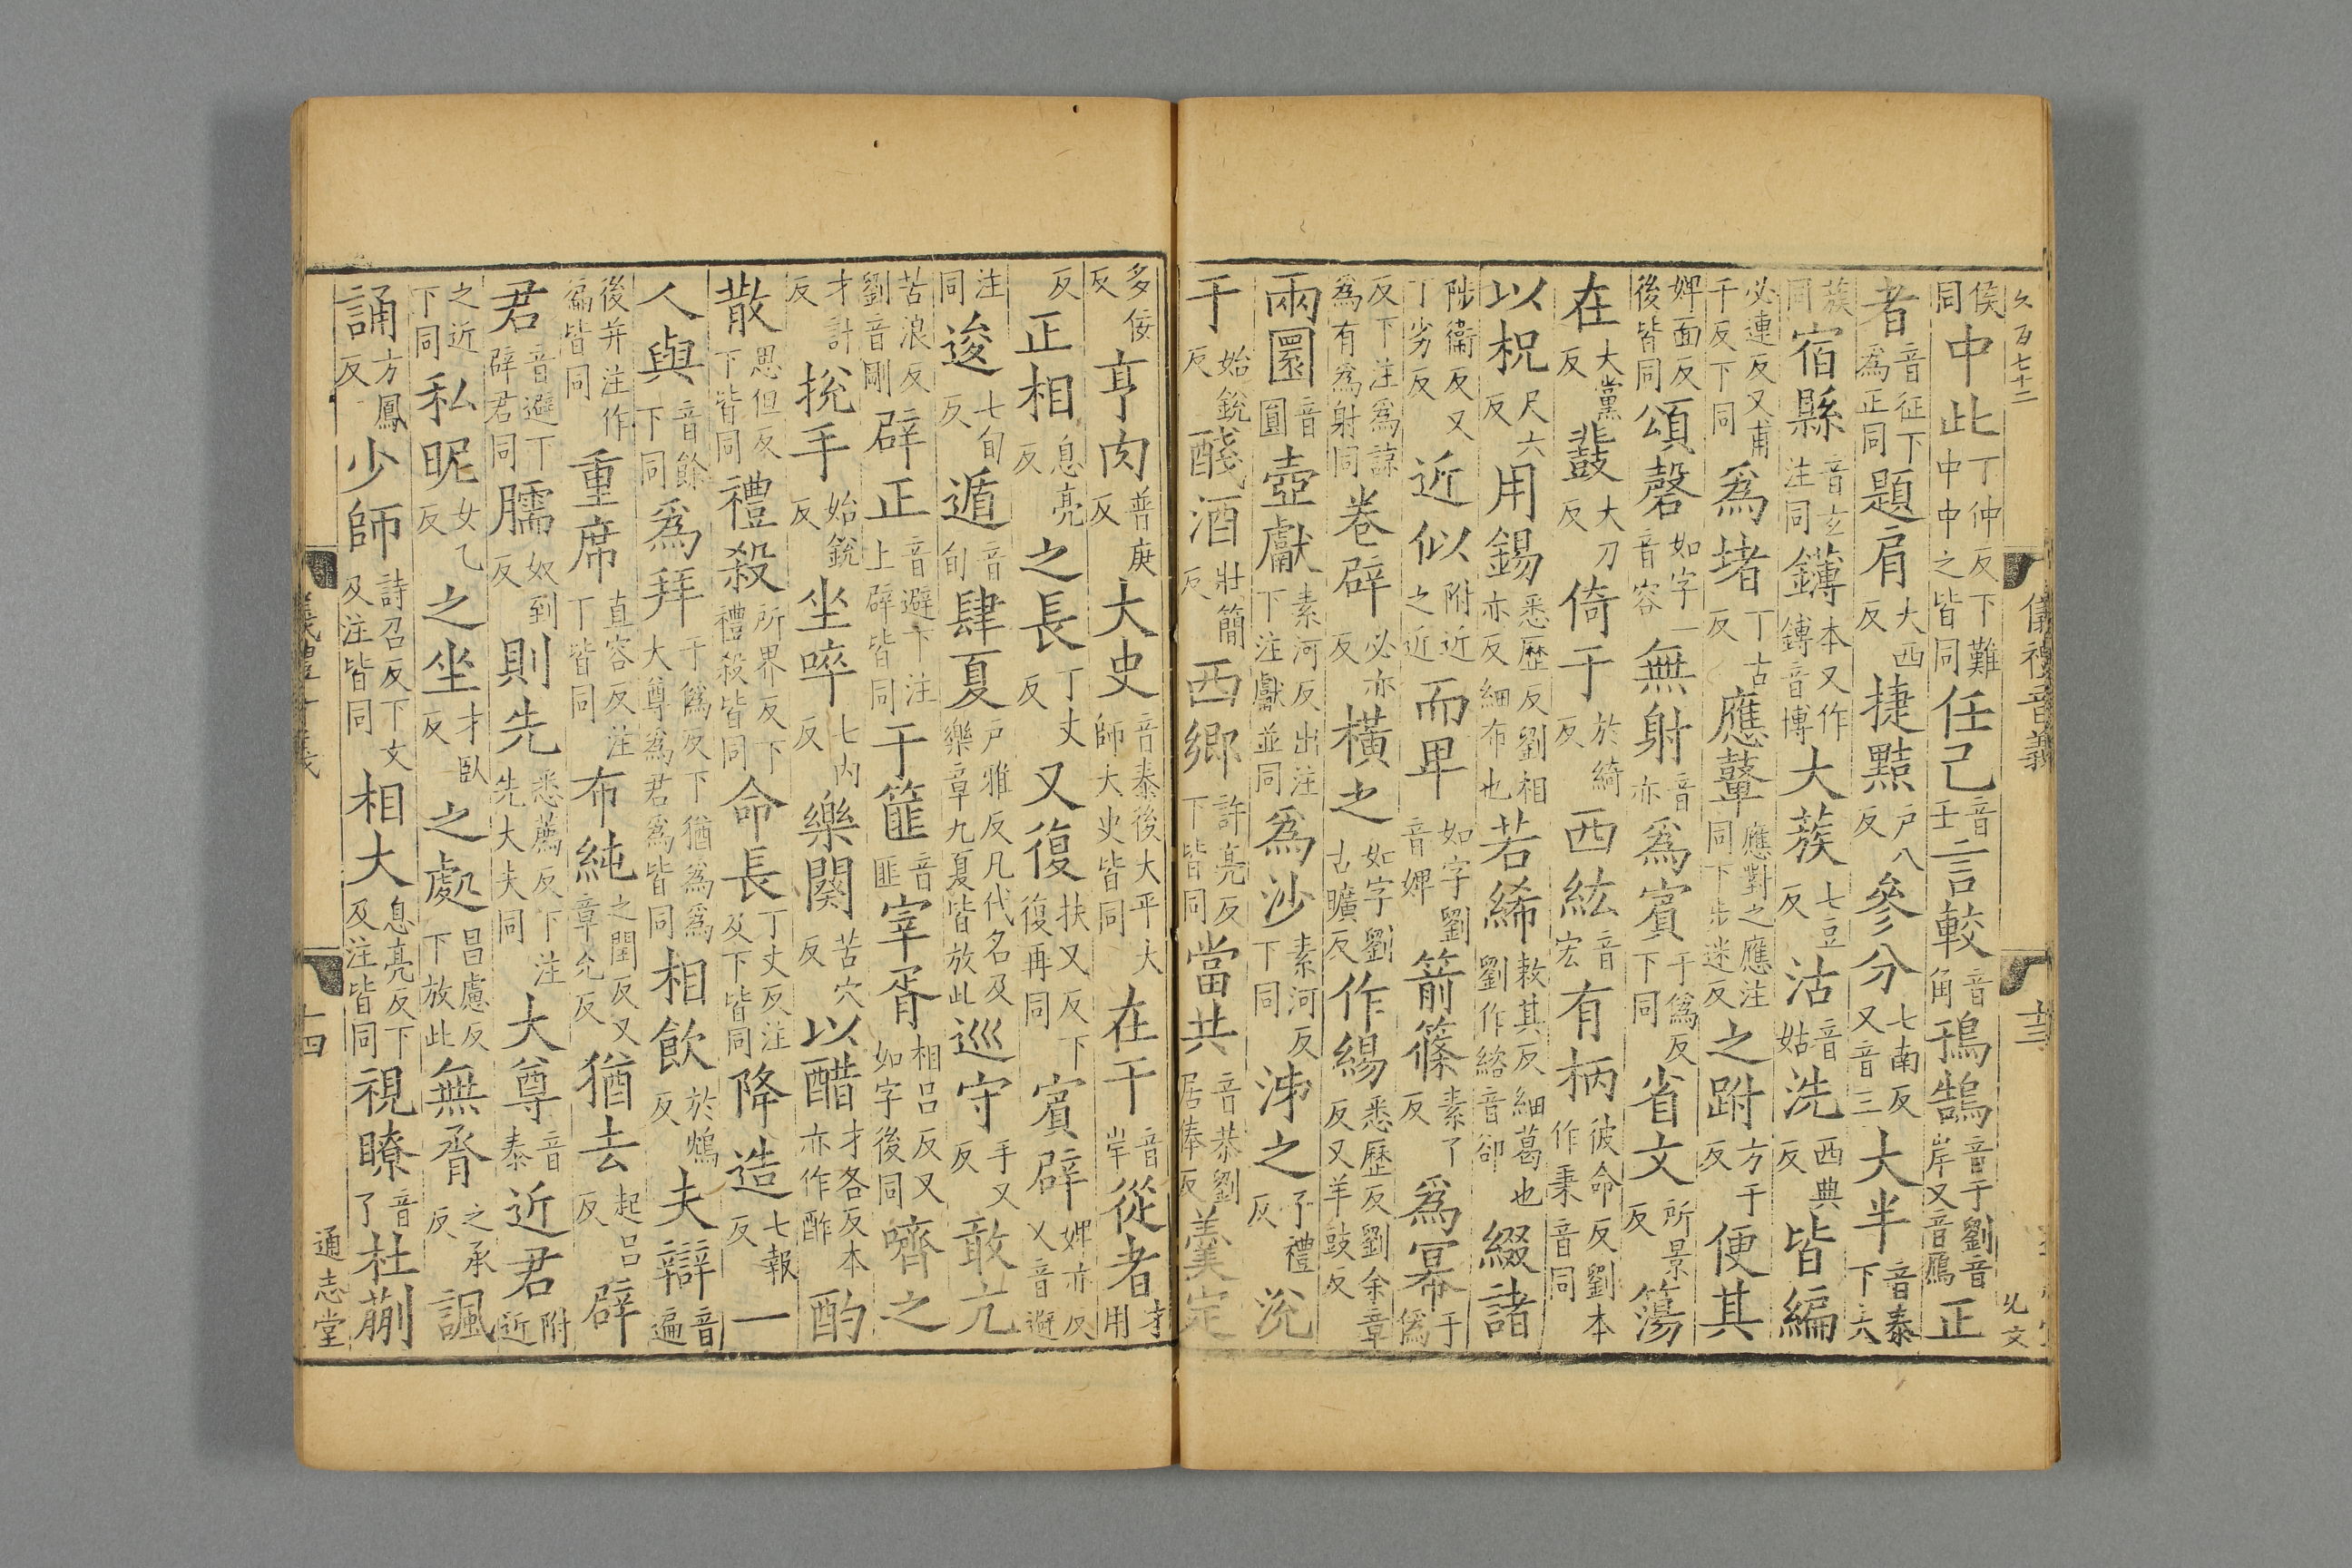 久百七十二 儀禮音義 十三
侯同中此丁仲反下難中中之皆同任己音壬言較音角鳱鵠音干劉音岸又音鴈正
者音征下為正同題肩大西反捷黠戶八反參分七南反又音三大半音泰下六
蔟同宿縣音玄注同鑮本又作鎛音博大蔟七豆反沽音姑洗西典反皆編
必連反又甫千反下同為堵丁古反應鼙應對之應注同下步迷反之跗方于反便其
婢面反後皆同頌磬如字一音容無射音亦為賓于為反下同省文所景反簜
在大黨反鼗大刀反倚于於綺反西紘音宏有柄彼命反劉本作秉音同
以柷尺六反用錫悉歷反劉相亦反細布也若絺敕其反細葛也劉作綌音卻綴諸
陟衞反又丁劣反近似附近之近而卑如字劉音婢箭篠素了反為冪于偽
反下注為諒為有為射同卷辟必亦反橫之如字劉古曠反作緆悉歷反劉余章反又羊豉反
兩圜音圓壺獻素河反出注下注獻並同為沙素河反下同泲之子禮反涚
于始銳反醆酒壯簡反西鄉許亮反下皆同當共音恭劉居俸反羹定
多佞反亨肉普庚反大史音泰後大平大師大史皆同在干音竿從者才用
反正相息亮反之長丁丈反又復扶又反下復再同賓辟婢亦反又音避
注同逡七旬反遁音旬肆夏戶雅反凡代名及樂章九夏皆放此巡守手又反敢亢
苦浪反劉音剛辟正音避下注上辟皆同于篚音匪宰胥相呂反又如字後同嚌之
才計反挩手始銳反坐啐七內反樂闋苦穴反以醋才各反本亦作酢酌
散思但反下皆同禮殺所界反下禮殺皆同命長丁丈反注及下皆同降造七報反一
人與音餘下同為拜于偽反下猶為為大尊為君為皆同相飲於鴆反夫辯音遍
後并注作徧皆同重席直容反注丁皆同布純之閏反又章允反猶去起呂反辟
君音避下辟君同臑奴到反則先悉薦反下注先大夫同大尊音泰近君附近
之近下同私昵女乙反之坐才臥反之處昌慮反下放此無脀之承反諷
誦方鳳反少師詩召反下文及注皆同相大息亮反下及注皆同視瞭音了杜蒯
十四 通志堂